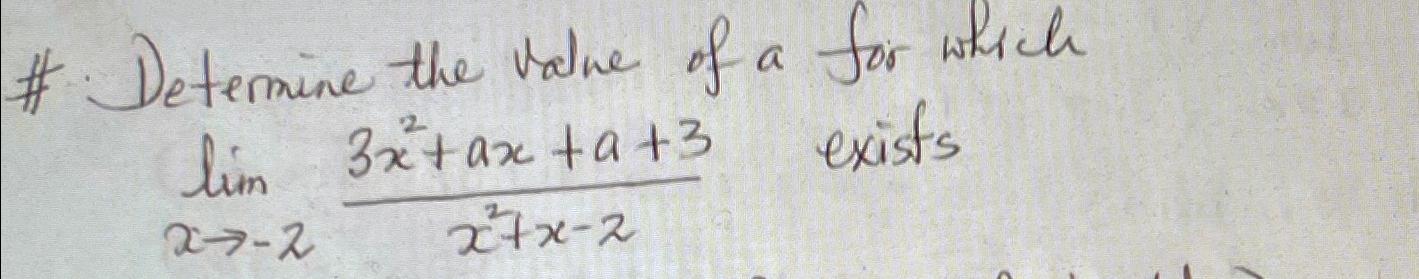 # Determine the value of a for which
lim x→-2 (3x²+ax+a+3)/(x²+x-2) exists